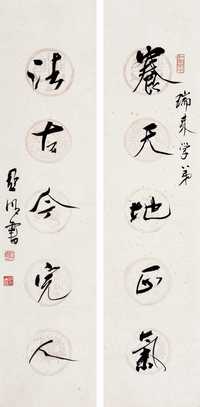 養天地正氣
瑞来学弟
法古今完人
亚明書